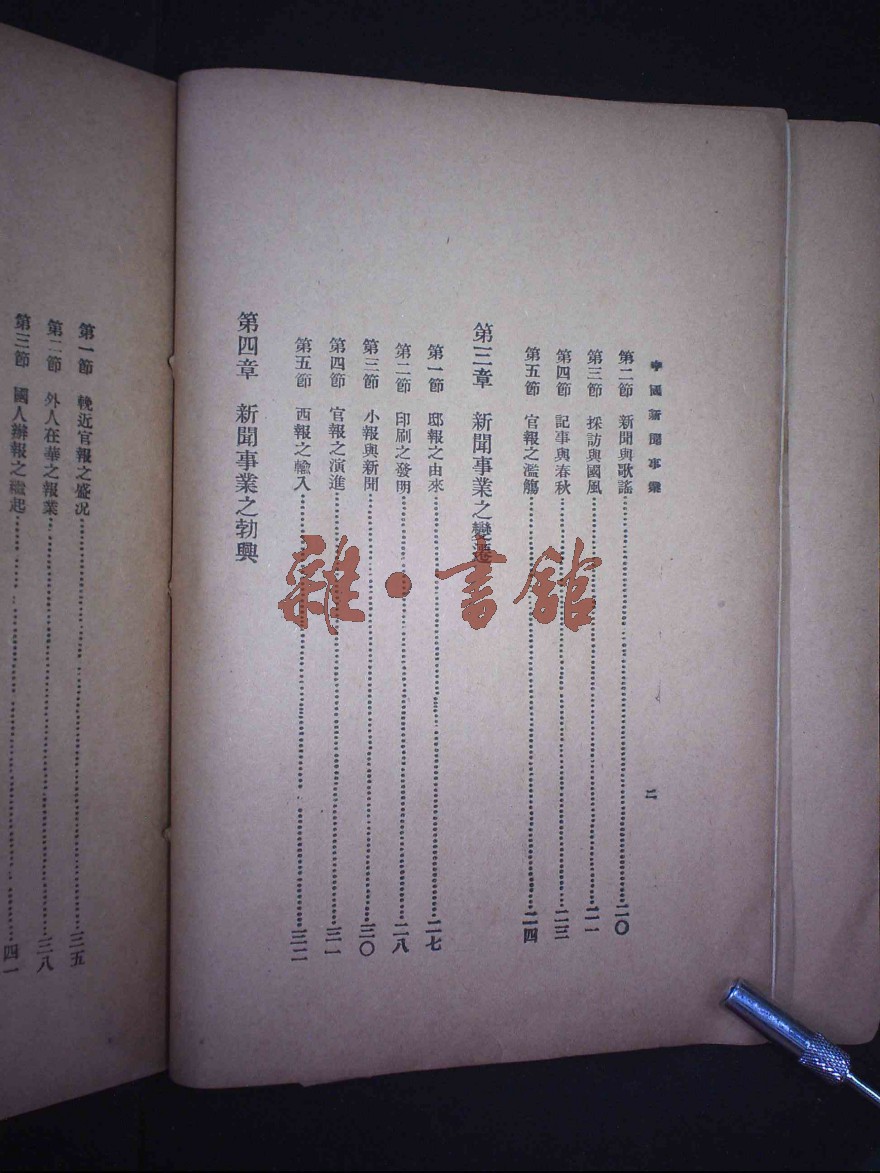 中國新聞事業
二
第二節 新聞與歌謠……二〇
第三節 採訪與國風……二一
第四節 記事與春秋……二三
第五節 官報之濫觴……二四
第三章 新聞事業之變遷
第一節 邸報之由來……二七
第二節 印刷之發明……二八
第三節 小報與新聞……三〇
第四節 官報之演進……三一
第五節 西報之輸入……三二
第四章 新聞事業之勃興
第一節 輓近官報之盛況……三五
第二節 外人在華之報業……三八
第三節 國人辦報之繼起……四一
雜·書館